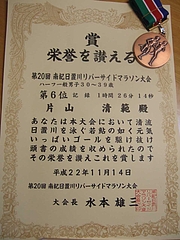 賞
栄誉を讃える
第20回 南紀日置川リバーサイドマラソン大会
ハーフ一般男子30〜39歳
第6位 記録 1時間26分14秒
片山 清範殿
あなたは本大会において清流
日置川を泳ぐ若鮎の如く元気
いっぱいゴールを駆け抜け
頭書の成績を収められたので
その栄誉を讃えこれを賞します
平成22年11月14日
第20回南紀日置川リバーサイドマラソン大会
大会長 水本雄三